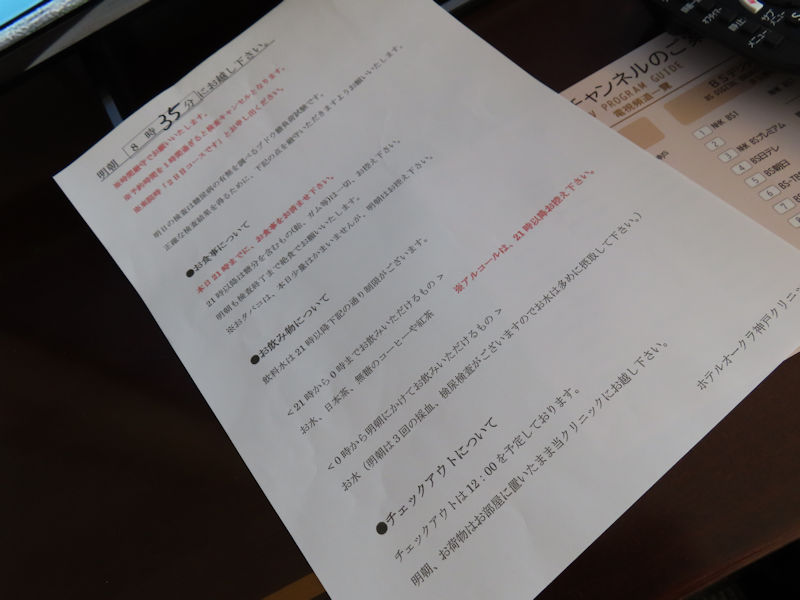 明朝 8 時 35 分にお越し下さい。
※時間厳守でお願いいたします。
※予約時間を1時間過ぎると検査キャンセルとなります。
※来院時「2日目コースです」とお申し出ください。
明日の検査は糖尿病の有無を調べるブドウ糖負荷試験です。
正確な検査結果を得るために、下記の点を厳守いただきますようお願いいたします。
●お食事について
本日21時までに、お食事をお済ませ下さい。
21時以降は糖分を含むもの(飴、ガム等)は一切、お控え下さい。
明朝も検査終了まで絶食でお願いいたします。
※おタバコは、本日少量はかまいませんが、明朝はお控え下さい。
●お飲み物について
飲料水は21時以降下記の通り制限がございます。
※アルコールは、21時以降お控え下さい。
<21時から0時までお飲みいただけるもの>
お水、日本茶、無糖のコーヒーや紅茶
<0時から明朝にかけてお飲みいただけるもの>
お水(明朝は3回の採血、検尿検査がございますのでお水は多めに摂取して下さい。)
●チェックアウトについて
チェックアウトは12:00を予定しております。
明朝、お荷物はお部屋に置いたまま当クリニックにお越し下さい。
ホテルオークラ神戸クリニッ
チャンネルのご
PROGRAM GUIDE
電視頻道一覽
BSデジ
1 NHK BS1
2
3 NHK BSプレミアム
4 BS日テレ
5 BS朝日
6 BS-TB
7 BS
8
停止
サブメニュー
メニュー